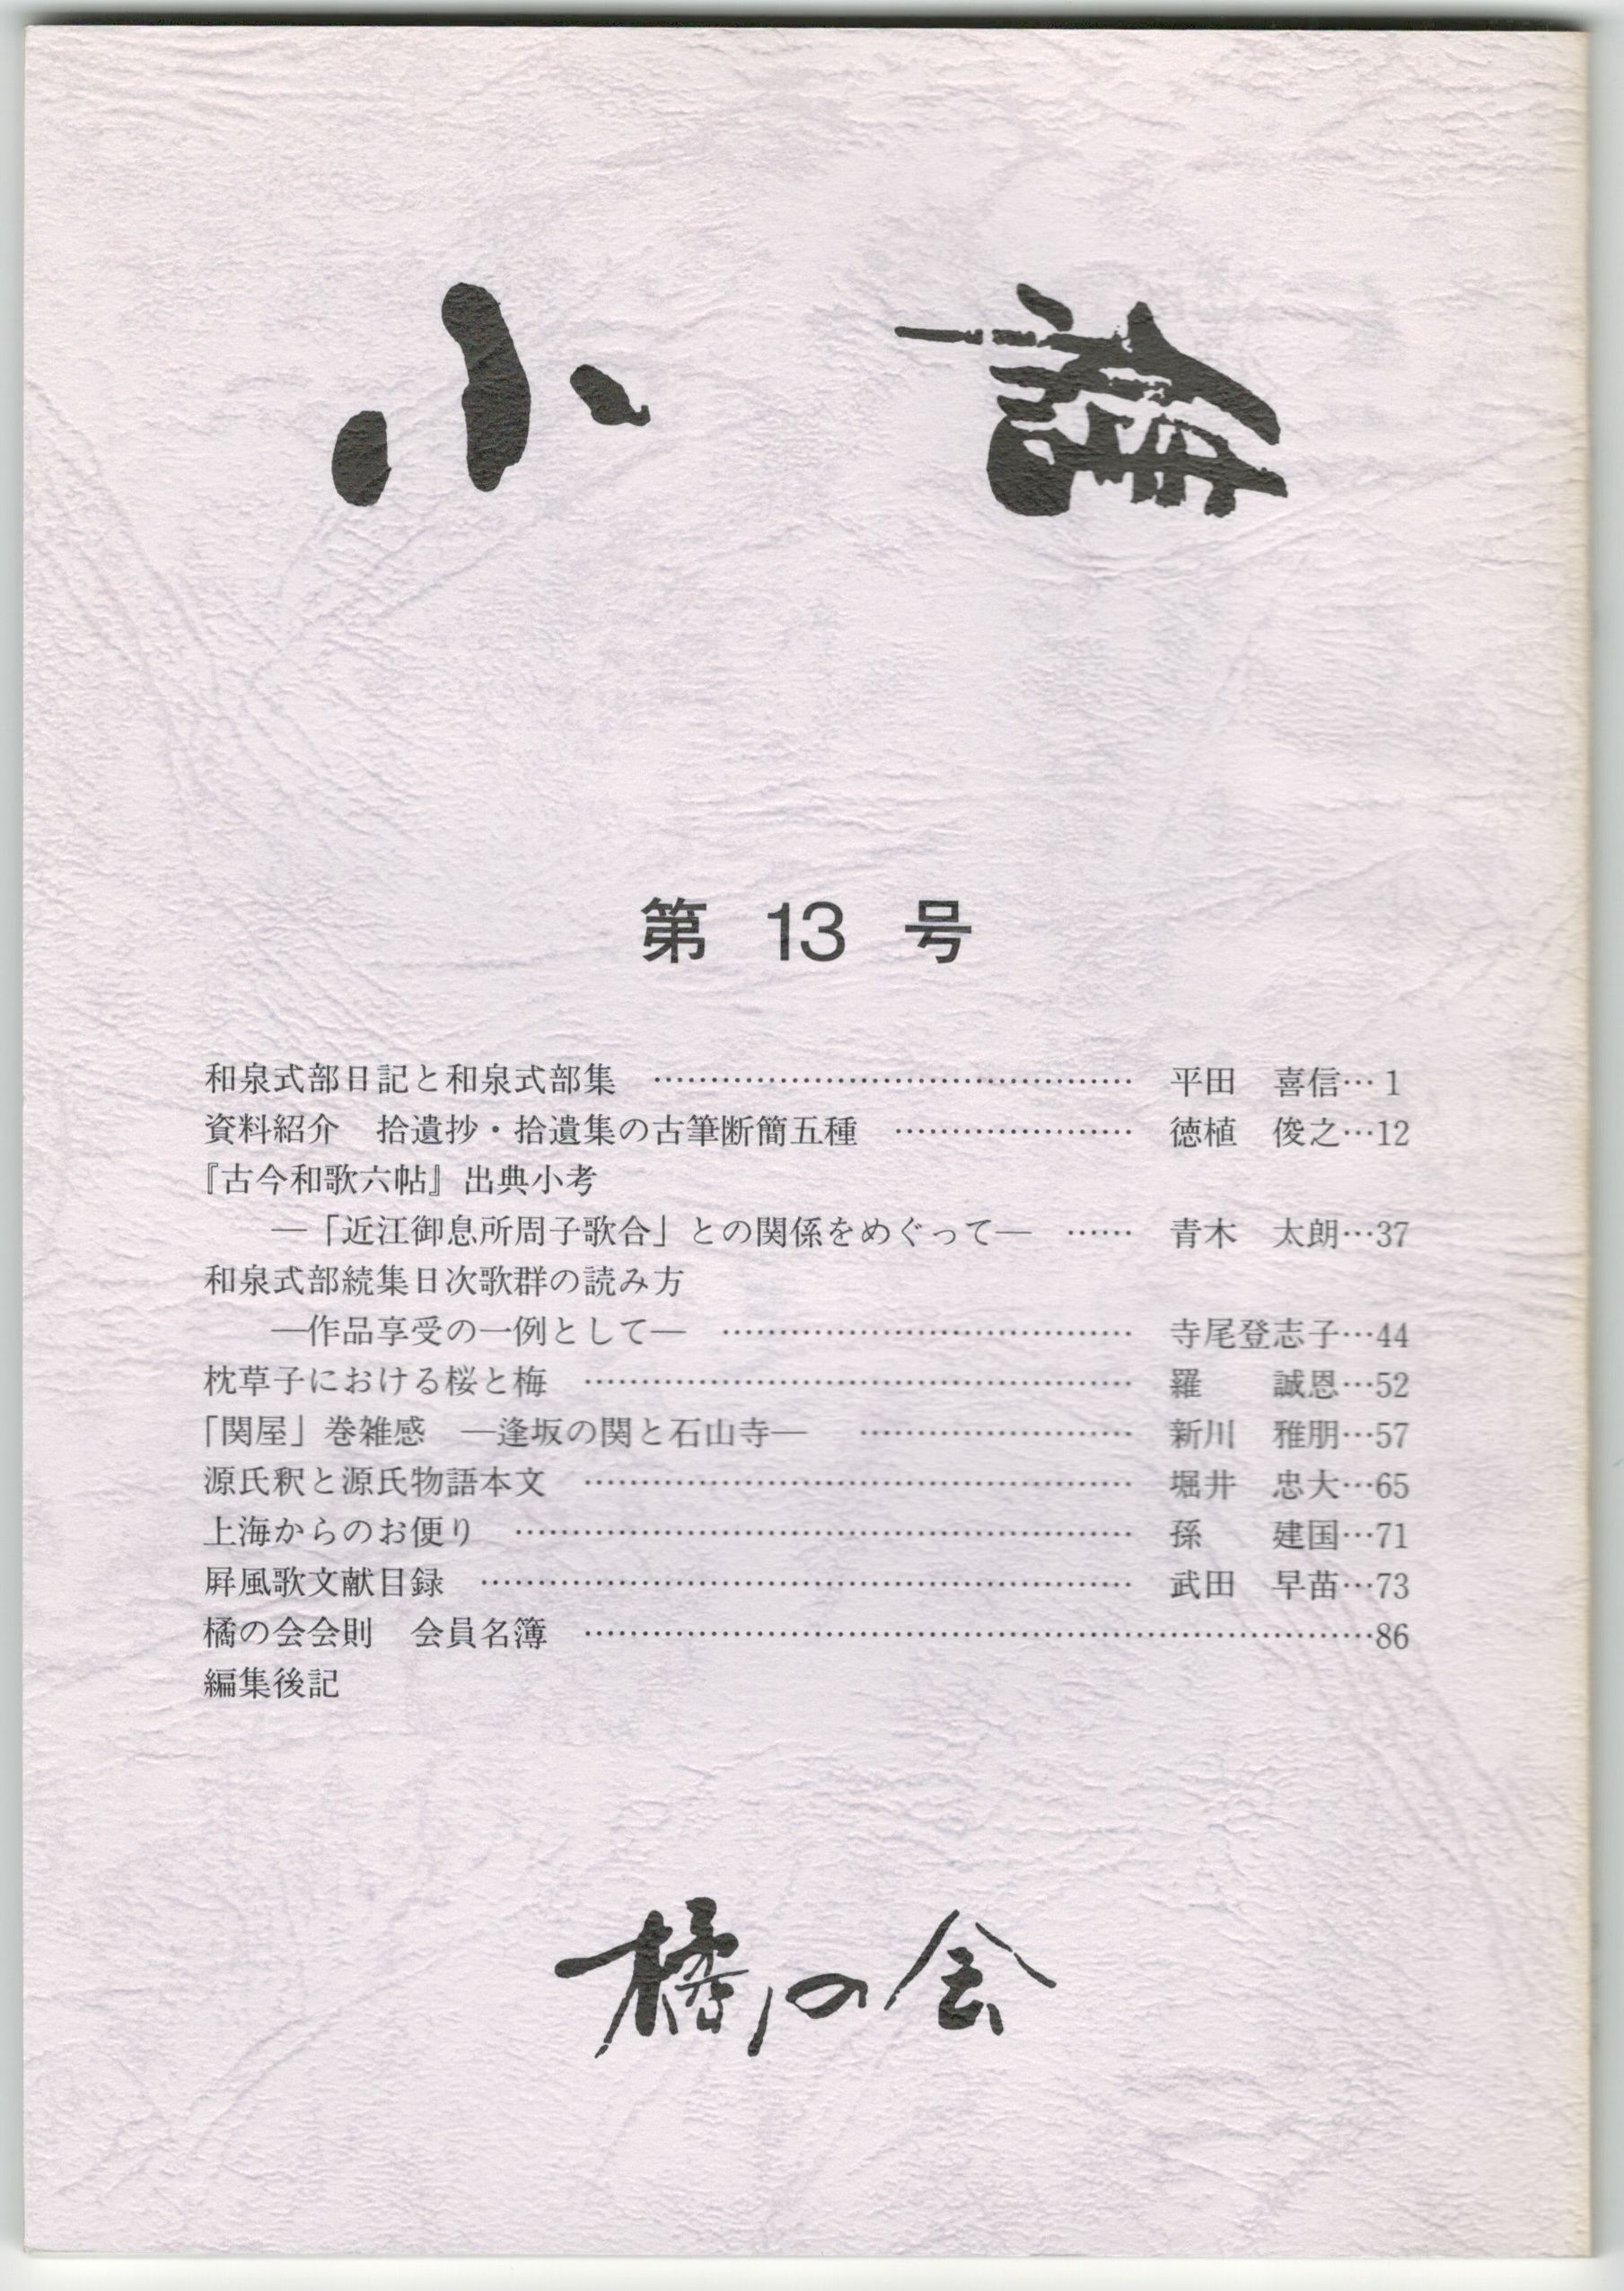 小論
第 13 号
和泉式部日記と和泉式部集 ……………………………………… 平田 喜信… 1
資料紹介 拾遺抄・拾遺集の古筆断簡五種 ………………… 徳植 俊之…12
『古今和歌六帖』出典小考
―「近江御息所周子歌合」との関係をめぐって― …… 青木 太朗…37
和泉式部続集日次歌群の読み方
―作品享受の一例として― ………………………………… 寺尾登志子…44
枕草子における桜と梅 …………………………………………… 羅 誠恩…52
「関屋」巻雑感 ―逢坂の関と石山寺― …………………… 新川 雅朋…57
源氏釈と源氏物語本文 …………………………………………… 堀井 忠大…65
上海からのお便り ………………………………………………… 孫 建国…71
屛風歌文献目録 …………………………………………………… 武田 早苗…73
橘の会会則 会員名簿 ………………………………………………………………86
編集後記
橘の会